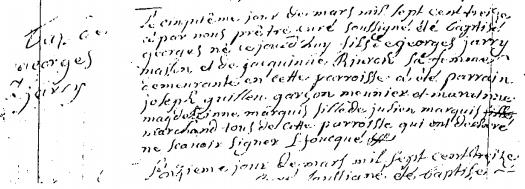 Bap. de
georges
jarry
Le cinquième jour de mars mil sept cent treize
a par nous prêtre curé soussigné été baptisé
georges né ce jourd'huy fils de georges jarry
masson et de jacquinne sa femme
demeurante en cette parroisse a été parrain
joseph guillen garçon meunier et maraine
magdelainne marquis fille de julien marquis
marchand tous de cette parroisse qui ont déclaré
ne scavoir signer
jour de mars mil sept cent treize
baptisé